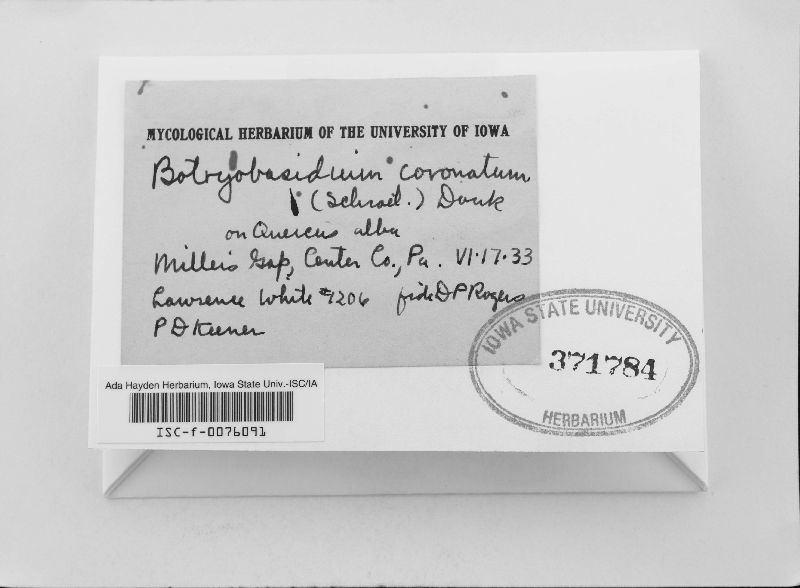 MYCOLOGICAL HERBARIUM OF THE UNIVERSITY OF IOWA
Botryobasidium coronatum
(Schroet.) Donk
on Quercus alba
Millers Gap, Center Co., Pa. VI·17·33
Lawrence White #1206 fide D P Rogers
P D Keener
IOWA STATE UNIVERSITY
371784
HERBARIUM
Ada Hayden Herbarium, Iowa State Univ.-ISC/IA
ISC-f-0076091